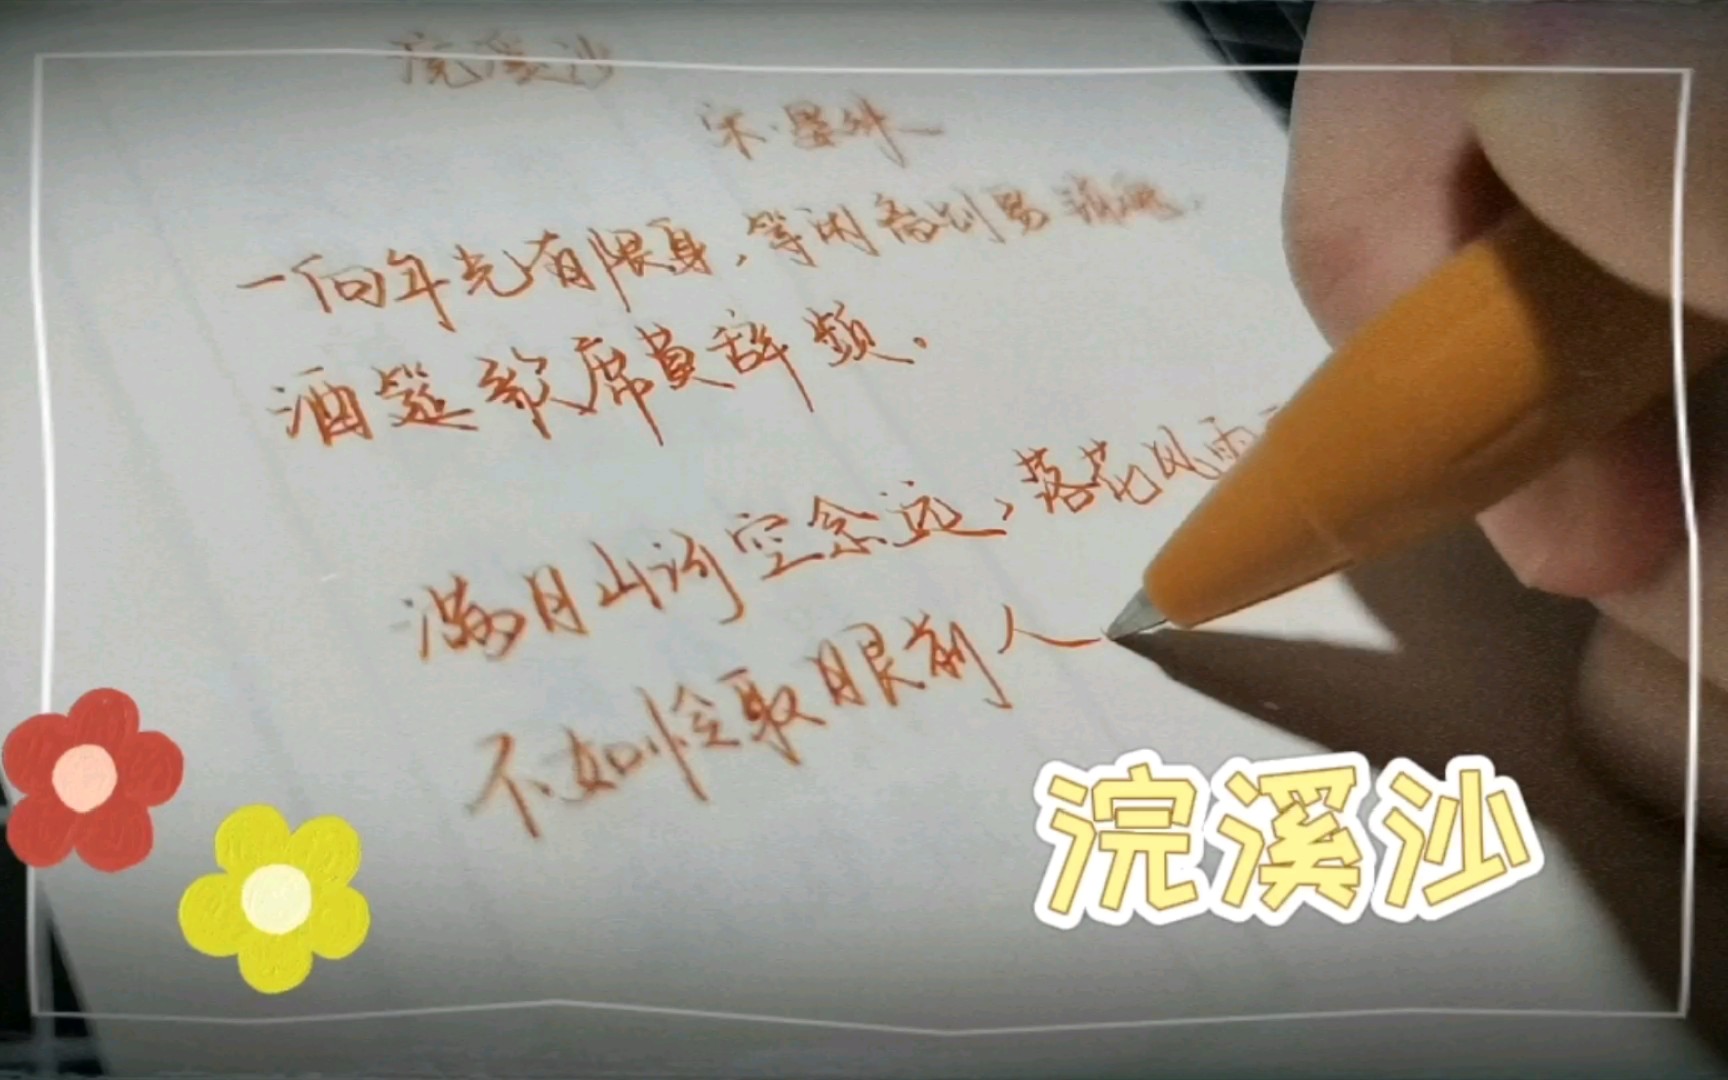 浣溪沙
宋·晏殊
一向年光有限身，等闲离别易销魂.
酒筵歌席莫辞频.
满目山河空念远，落花风雨
不如怜取眼前人
浣溪沙